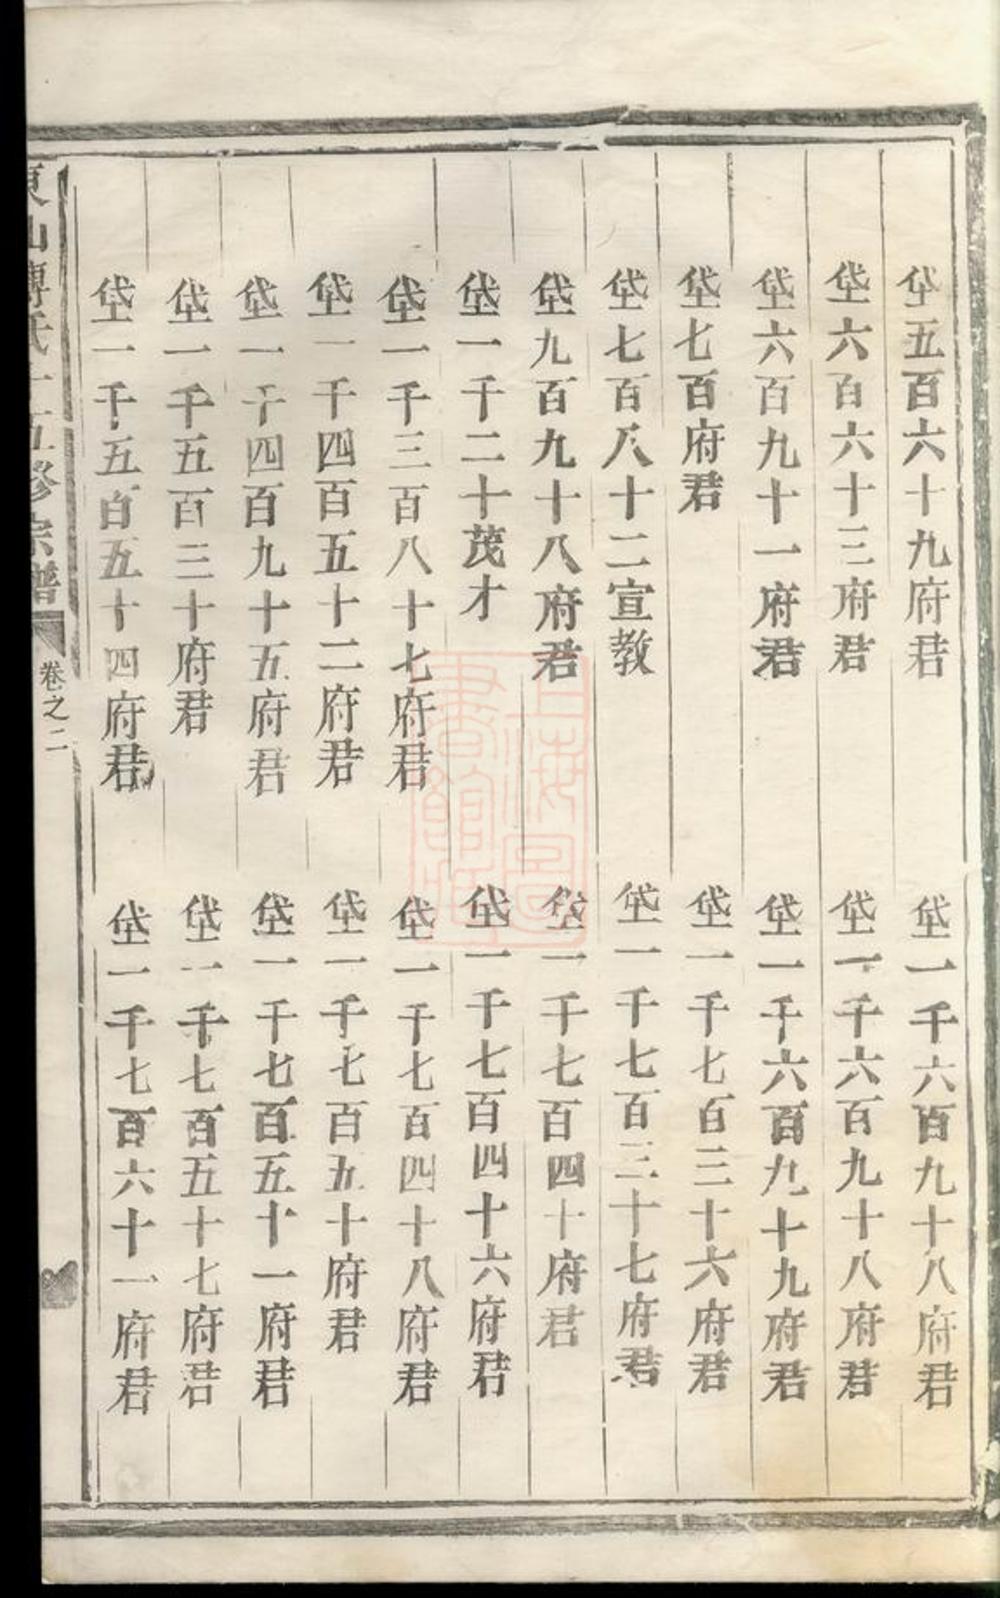 垈五百六十九府君
垈六百六十三府君
垈六百九十一府君
垈七百府君
垈七百八十二宣教
垈九百九十八府君
垈一千二十茂才
垈一千三百八十七府君
垈一千四百五十二府君
垈一千四百九十五府君
垈一千五百三十府君
垈一千五百五十四府君
垈一千六百九十八府君
垈一千六百九十八府君
垈一千六百九十九府君
垈一千七百三十六府君
垈一千七百三十七府君
垈一千七百四十府君
垈一千七百四十六府君
垈一千七百四十八府君
垈一千七百五十府君
垈一千七百五十一府君
垈一千七百五十七府君
垈一千七百六十一府君
東山傅氏十五修宗譜
卷之二
上海圖書館藏